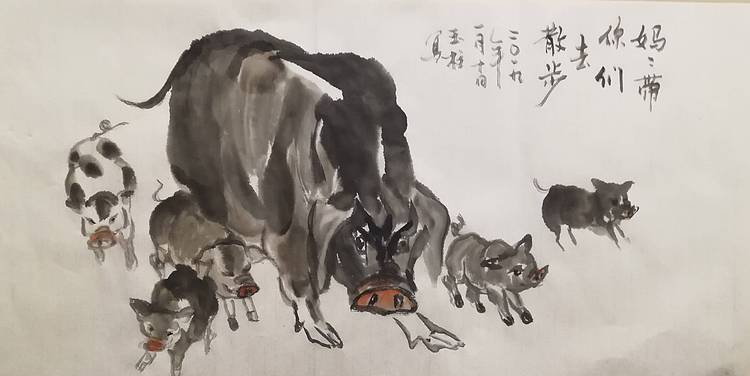 妈々带
你们
去
散步
二〇一九
年
一月十日
玉柱
写